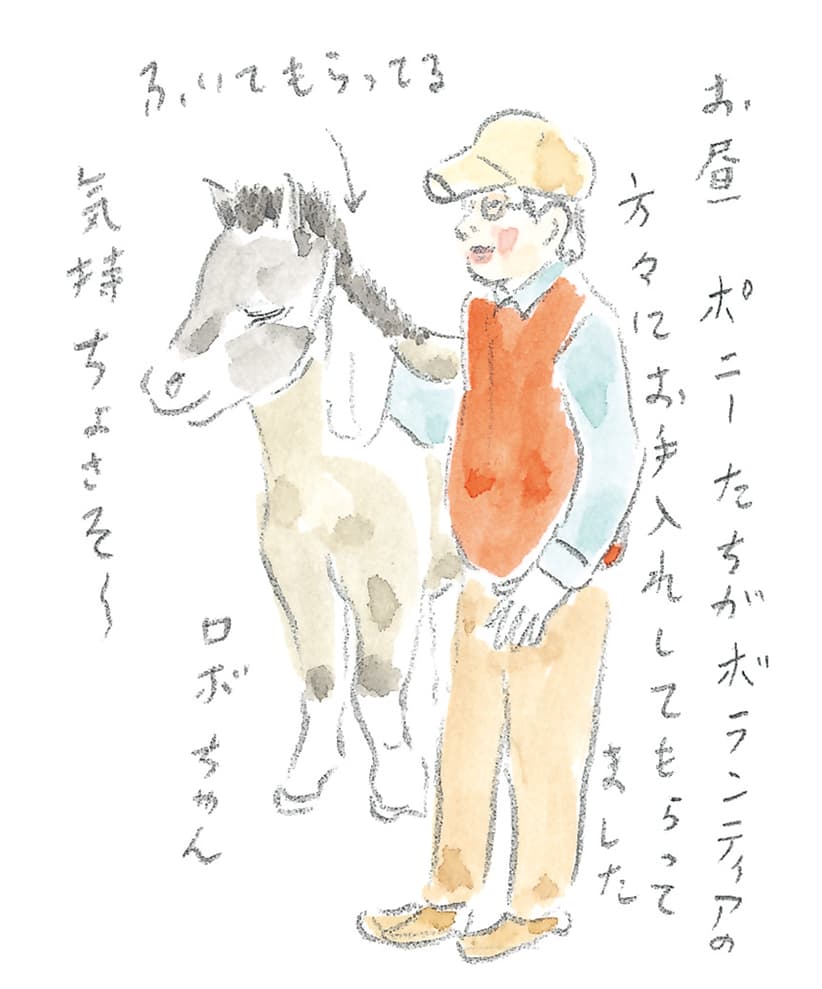 お昼 ポニーたちがボランティアの
方々にお手入れしてもらって
ました
ふいてもらってる
気持ちよさそ〜
ロボちゃん